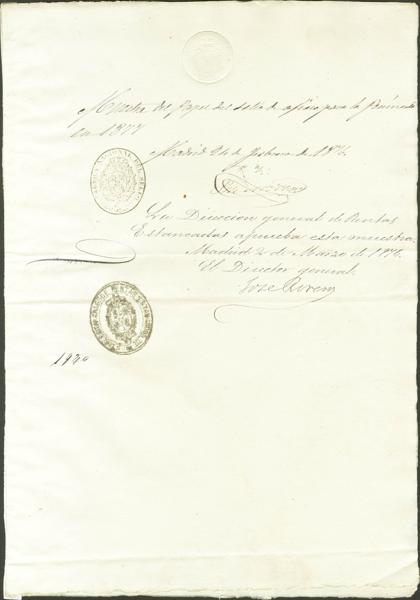 Muestra del papel del sello de oficio para la Península
en 1877
Madrid 24 de Febrero de 1876
La Direccion general de Rentas
Estancadas aprueba esta muestra.
Madrid 2 de Marzo de 1876.
El Director general
Jose Rivero
1930